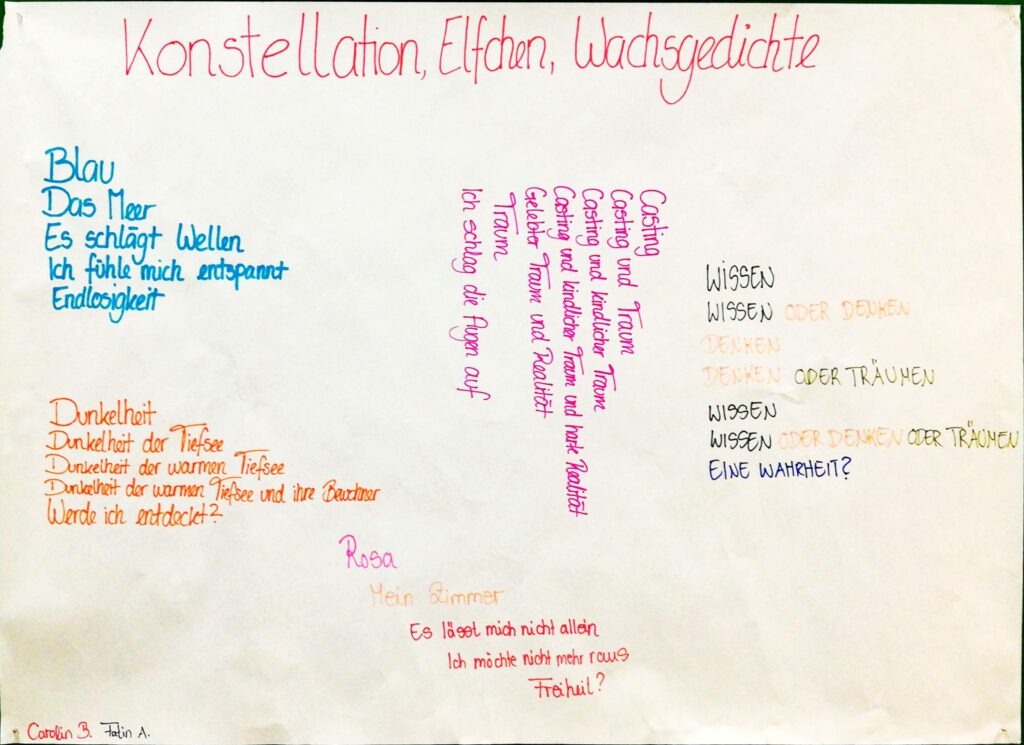 Konstellation, Elfchen, Wachsgedichte
Blau
Das Meer
Es schlägt Wellen
Ich fühle mich entspannt
Endlosigkeit
Dunkelheit
Dunkelheit der Tiefsee
Dunkelheit der warmen Tiefsee
Dunkelheit der warmen Tiefsee und ihre Bewohner
Werde ich entdeckt?
Casting
Casting und Traum
Casting und kindlicher Traum
Casting und kindlicher Traum und harte Realität
Gelebter Traum und Realität
Traum
Ich schlag die Augen auf
WISSEN
WISSEN ODER DENKEN
DENKEN
DENKEN ODER TRÄUMEN
WISSEN
WISSEN ODER DENKEN ODER TRÄUMEN
EINE WAHRHEIT?
Rosa
Mein Zimmer
Es lässt mich nicht allein
Ich möchte nicht mehr raus
Freiheit?
Carolin B. Fatin A.